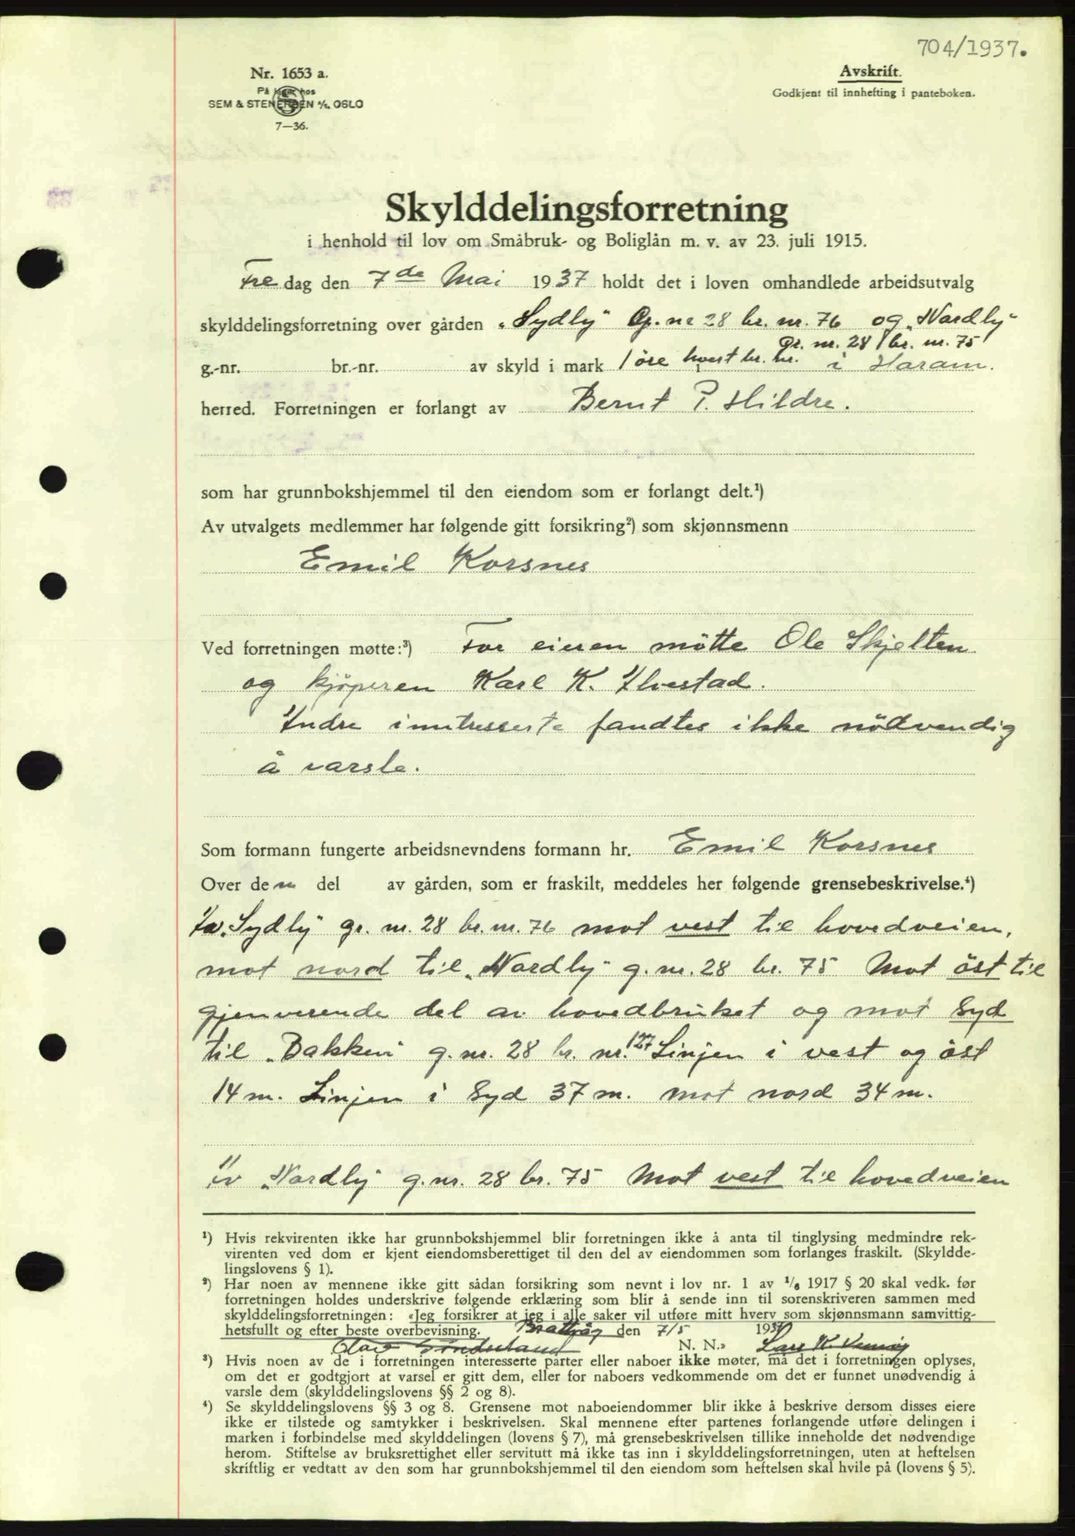 704/1937.
Nr. 1653 a.
På lager hos
SEM & STENERSEN A/S, OSLO
7—36.
Avskrift.
Godkjent til innhefting i panteboken.
Skylddelingsforretning
i henhold til lov om Småbruk- og Boliglån m. v. av 23. juli 1915.
Fredag den 7de Mai 1937 holdt det i loven omhandlede arbeidsutvalg
skylddelingsforretning over gården „Sydly" G. nr 28 br. nr. 76 og „Nordly"
Gr. nr. 28 br. nr. 75
g.-nr. br.-nr. av skyld i mark 1 öre hvert br. nr. i Haram.
herred. Forretningen er forlangt av Bernt P. Hildre.
som har grunnbokshjemmel til den eiendom som er forlangt delt.¹)
Av utvalgets medlemmer har følgende gitt forsikring²) som skjønnsmenn
Emil Korsnes
Ved forretningen møtte:³) For eieren mötte Ole Skjelten
og kjöperen Karl K. Ilvestad.
Andre inntresserte fandtes ikke nödvendig
å varsle.
Som formann fungerte arbeidsnevndens formann hr. Emil Korsnes
Over den del av gården, som er fraskilt, meddeles her følgende grensebeskrivelse.⁴)
„Sydly" gr. nr. 28 br. nr. 76 mot vest til hovedveien,
mot nord til „Nordly" g. nr. 28 br. 75 Mot öst til
gjenverende del av hovedbruket og mot Syd
til „Bakken" g. nr. 28 br. nr. 127 Linjen i vest og öst
14 m. Linjen i Syd 37 m. mot nord 34 m.
„Nordly" g. nr. 28 br. 75 Mot vest til hovedveien
¹) Hvis rekvirenten ikke har grunnbokshjemmel blir forretningen ikke å anta til tinglysing medmindre rek-
virenten ved dom er kjent eiendomsberettiget til den del av eiendommen som forlanges fraskilt. (Skyldde-
lingslovens § 1).
²) Har noen av mennene ikke gitt sådan forsikring som nevnt i lov nr. 1 av 1/6 1917 § 20 skal vedk. før
forretningen holdes underskrive følgende erklæring som blir å sende inn til sorenskriveren sammen med
skylddelingsforretningen: «Jeg forsikrer at jeg i alle saker vil utføre mitt hverv som skjønnsmann samvittig-
hetsfullt og efter beste overbevisning. Brattvåg den 7/5 1937
N. N.» Lars K.
³) Hvis noen av de i forretningen interesserte parter eller naboer ikke møter, må det i forretningen oplyses,
om det er godtgjort at varsel er gitt dem, eller for naboers vedkommende om det er funnet unødvendig å
varsle dem (skylddelingslovens §§ 2 og 8).
⁴) Se skylddelingslovens §§ 3 og 8. Grensene mot naboeiendommer blir ikke å beskrive dersom disses eiere
ikke er tilstede og samtykker i beskrivelsen. Skal mennene efter partenes forlangende utføre delingen i
marken i forbindelse med skylddelingen (lovens § 7), må grensebeskrivelsen tillike inneholde det nødvendige
herom. Stiftelse av bruksrettighet eller servitutt må ikke tas inn i skylddelingsforretningen, uten at heftelsen
skriftlig er vedtatt av den som har grunnbokshjemmel til den eiendom som heftelsen skal hvile på (lovens § 5).